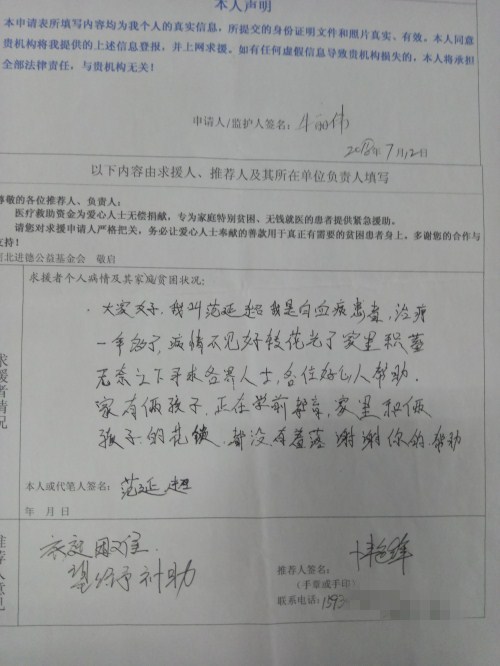 本人声明
本申请表所填写内容均为我个人的真实信息，所提交的身份证明文件和照片真实、有效。本人同意
贵机构将我提供的上述信息登报，并上网求援。如有任何虚假信息导致贵机构损失的，本人将承担
全部法律责任，与贵机构无关！
申请人/监护人签名：
2018年7月12日
以下内容由求援人、推荐人及其所在单位负责人填写
尊敬的各位推荐人、负责人：
医疗救助资金为爱心人士无偿捐献，专为家庭特别贫困、无钱就医的患者提供紧急援助。
请您对求援申请人严格把关，务必让爱心人士奉献的善款用于真正有需要的贫困患者身上。多谢您的合作与
支持！
河北进德公益基金会 敬启
求援者情况
求援者个人病情及其家庭贫困状况：
大家好，我叫范延超 我是白血病患者，治疗
一年多了，病情不见好转花光了家里积蓄
无奈之下寻求各界人士，各位好心人帮助。
家有俩孩子，正在学前教育，家里和俩
孩子的花销，都没有着落 谢谢你的帮助
本人或代笔人签名：范延超
年 月 日
推荐人意见
家庭困难
望给予补助
推荐人签名：
（手章或手印）
联系电话：1593